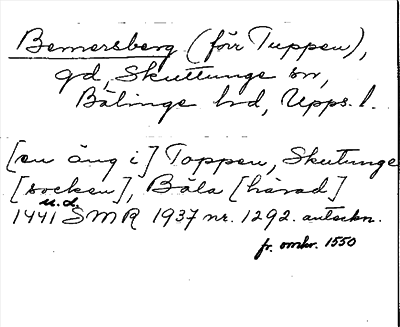 Bemersberg (förr Tuppen),
gd, Skuttunge sn,
Bälinge hd, Upps. l.
[en äng i] Toppen, Skutunge
[socken], Bäla [härad]
1441 u.d. SMR 1937 nr. 1292. anteckn.
fr. omkr. 1550